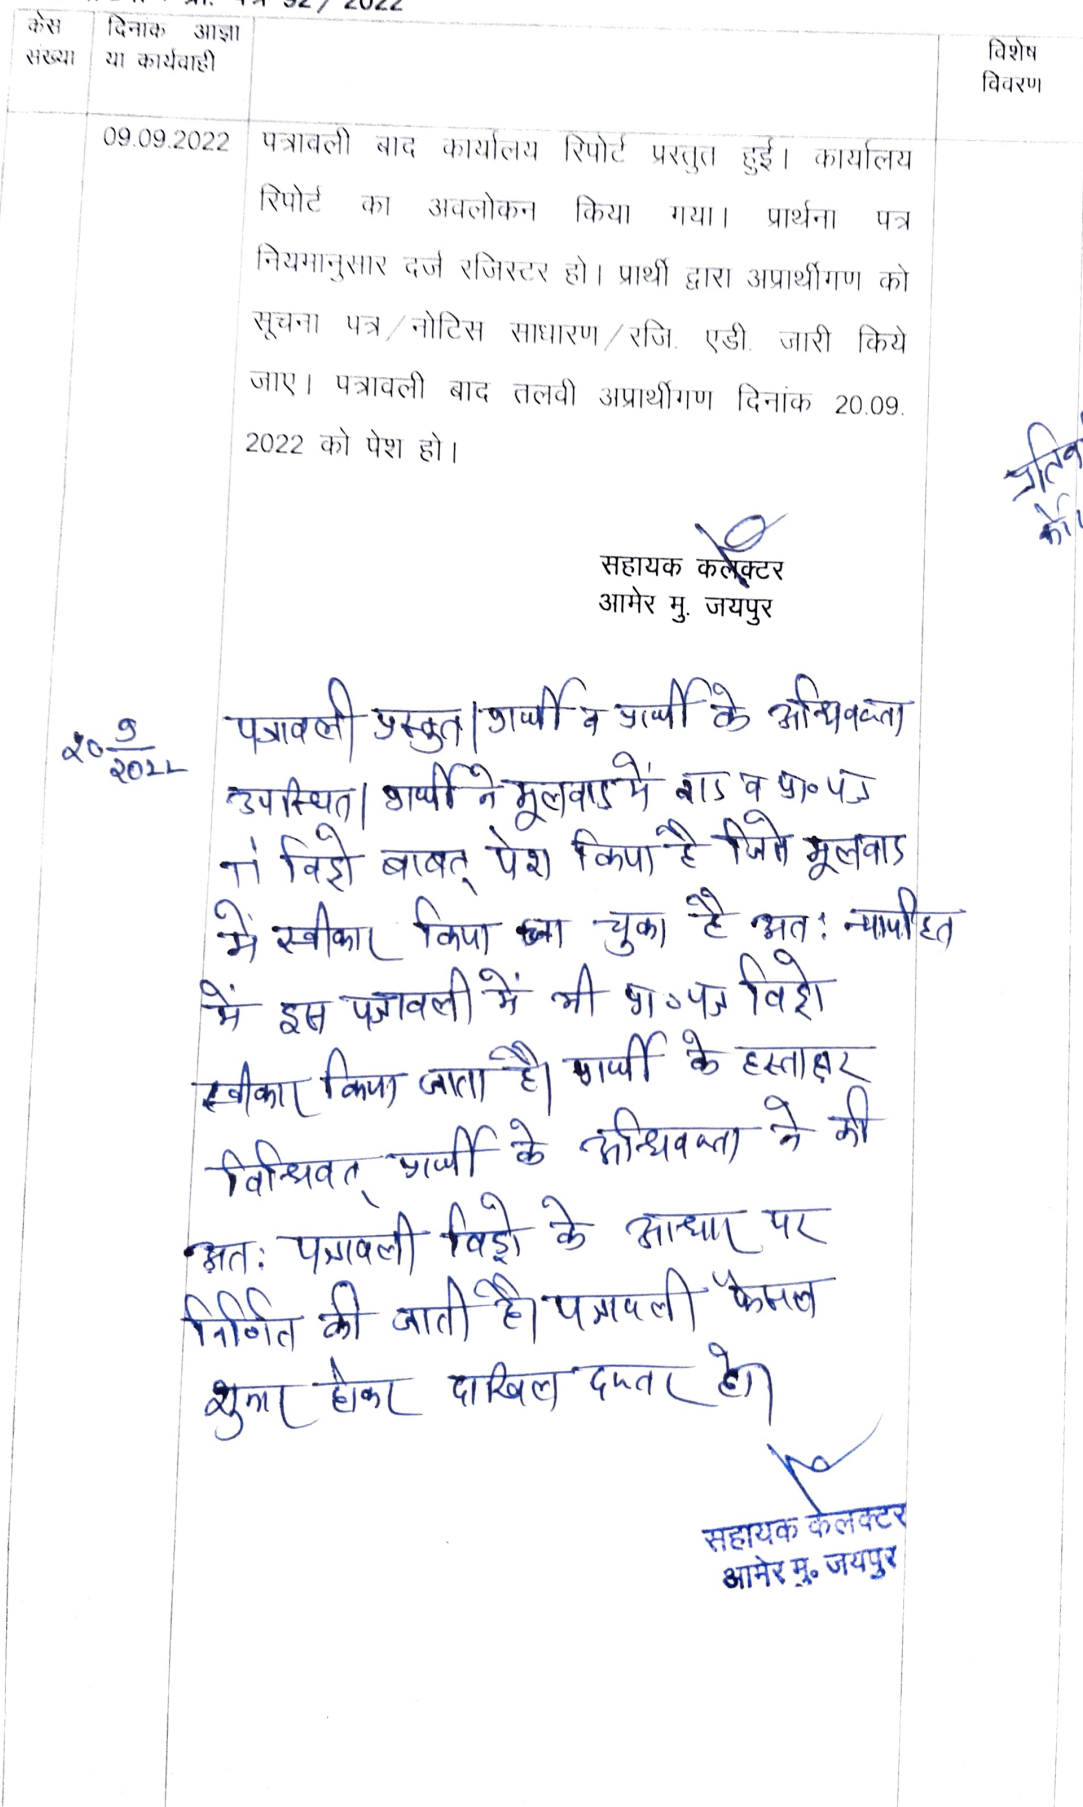 92/2022
केस दिनांक आज्ञा
संख्या या कार्यवाही
विशेष
विवरण
09.09.2022 पत्रावली बाद कार्यालय रिपोर्ट प्रस्तुत हुई। कार्यालय
रिपोर्ट का अवलोकन किया गया। प्रार्थना पत्र
नियमानुसार दर्ज रजिस्टर हो। प्रार्थी द्वारा अप्रार्थीगण को
सूचना पत्र/नोटिस साधारण/रजि. एडी. जारी किये
जाए। पत्रावली बाद तलवी अप्रार्थीगण दिनांक 20.09.
2022 को पेश हो।
सहायक कलेक्टर
आमेर मु. जयपुर
२० 9/२०२२ पत्रावली प्रस्तुत। प्रार्थी व प्रार्थी के अधिवक्ता
उपस्थित। प्रार्थी ने मूलवाद में व प्रा॰ पत्र
विड्रो बाबत् पेश किया है जिसे मूलवाद
में स्वीकार किया जा चुका है अतः न्यायहित
में इस पत्रावली में भी प्रा॰पत्र विड्रो
स्वीकार किया जाता है। प्रार्थी के हस्ताक्षर
विधिवत् प्रार्थी के अधिवक्ता ने की
अतः पत्रावली विड्रो के आधार पर
निर्णित की जाती है। पत्रावली फैसल
शुमार होकर दाखिल दफ्तर हो।
सहायक कलेक्टर
आमेर मु॰ जयपुर